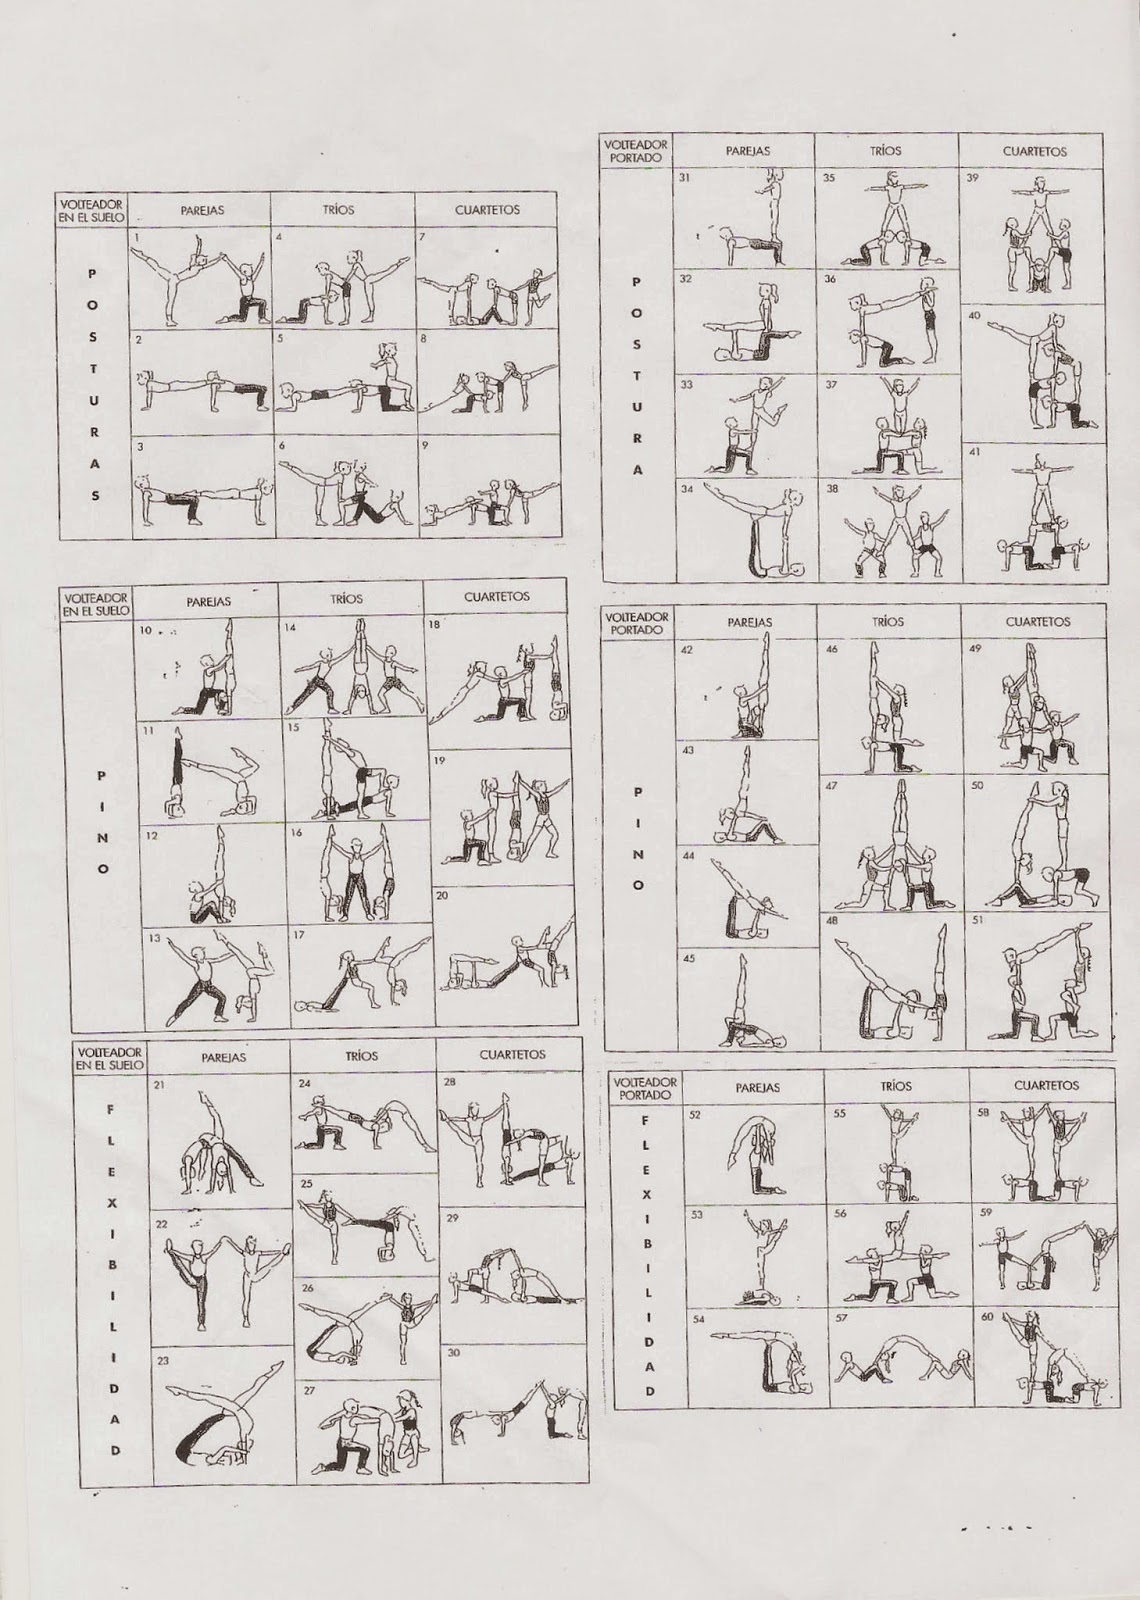 VOLTEADOR EN EL SUELO
PAREJAS
TRÍOS
CUARTETOS
POSTURAS
1 4 7
2 5 8
3 6 9
VOLTEADOR EN EL SUELO
PAREJAS
TRÍOS
CUARTETOS
PINO
10 14 18
11 15 19
12 16 20
13 17
VOLTEADOR EN EL SUELO
PAREJAS
TRÍOS
CUARTETOS
FLEXIBILIDAD
21 24 28
22 25 29
23 26 30
27
VOLTEADOR PORTADO
PAREJAS
TRÍOS
CUARTETOS
POSTURA
31 35 39
32 36 40
33 37 41
34 38
VOLTEADOR PORTADO
PAREJAS
TRÍOS
CUARTETOS
PINO
42 46 49
43 47 50
44 48 51
45
VOLTEADOR PORTADO
PAREJAS
TRÍOS
CUARTETOS
FLEXIBILIDAD
52 55 58
53 56 59
54 57 60